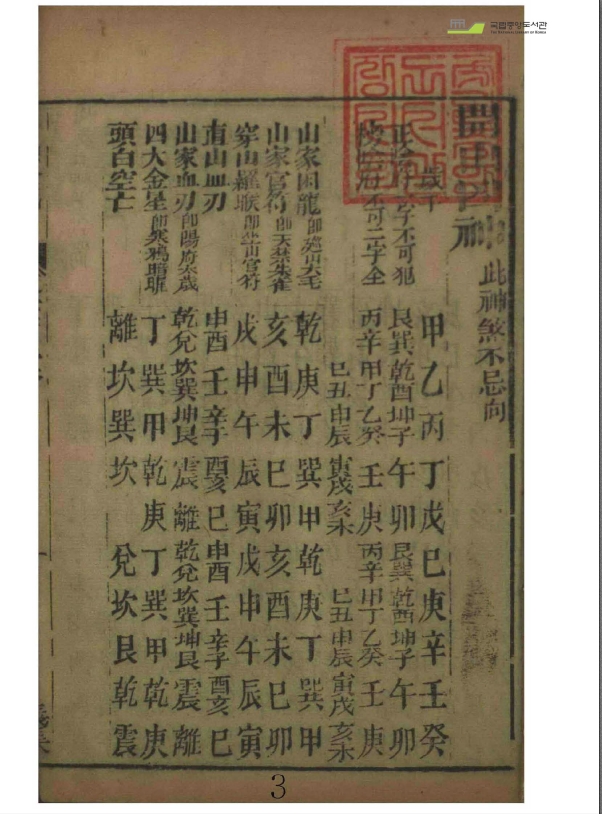 국립중앙도서관
THE NATIONAL LIBRARY OF KOREA
開山 神 此神煞不忌向
歲干 甲乙丙丁戊己庚辛壬癸
陰府 字不可犯 艮巽乾酉坤子午卯艮巽乾酉坤子午卯
陰府不可二字全 丙辛甲丁乙癸壬庚丙辛甲丁乙癸壬庚
巳丑申辰寅戌亥未巳丑申辰寅戌亥未
山家困龍 即 山大毛 乾庚丁巽甲乾庚丁巽甲
山家官符 即天禁朱雀 亥酉未巳卯亥酉未巳卯
穿山羅睺 即坐山官符 戌申午辰寅戌申午辰寅
直山血刃 申酉壬辛子酉亥巳申酉壬辛子酉亥巳
山家血刃 即陽府太歲 乾兌坎巽坤艮震離乾兌坎巽坤艮震離
四大金星 即寒鴉暗曜 丁巽甲乾庚丁巽甲乾庚
頭白空亡 離坎巽坎兌坎艮乾震
3